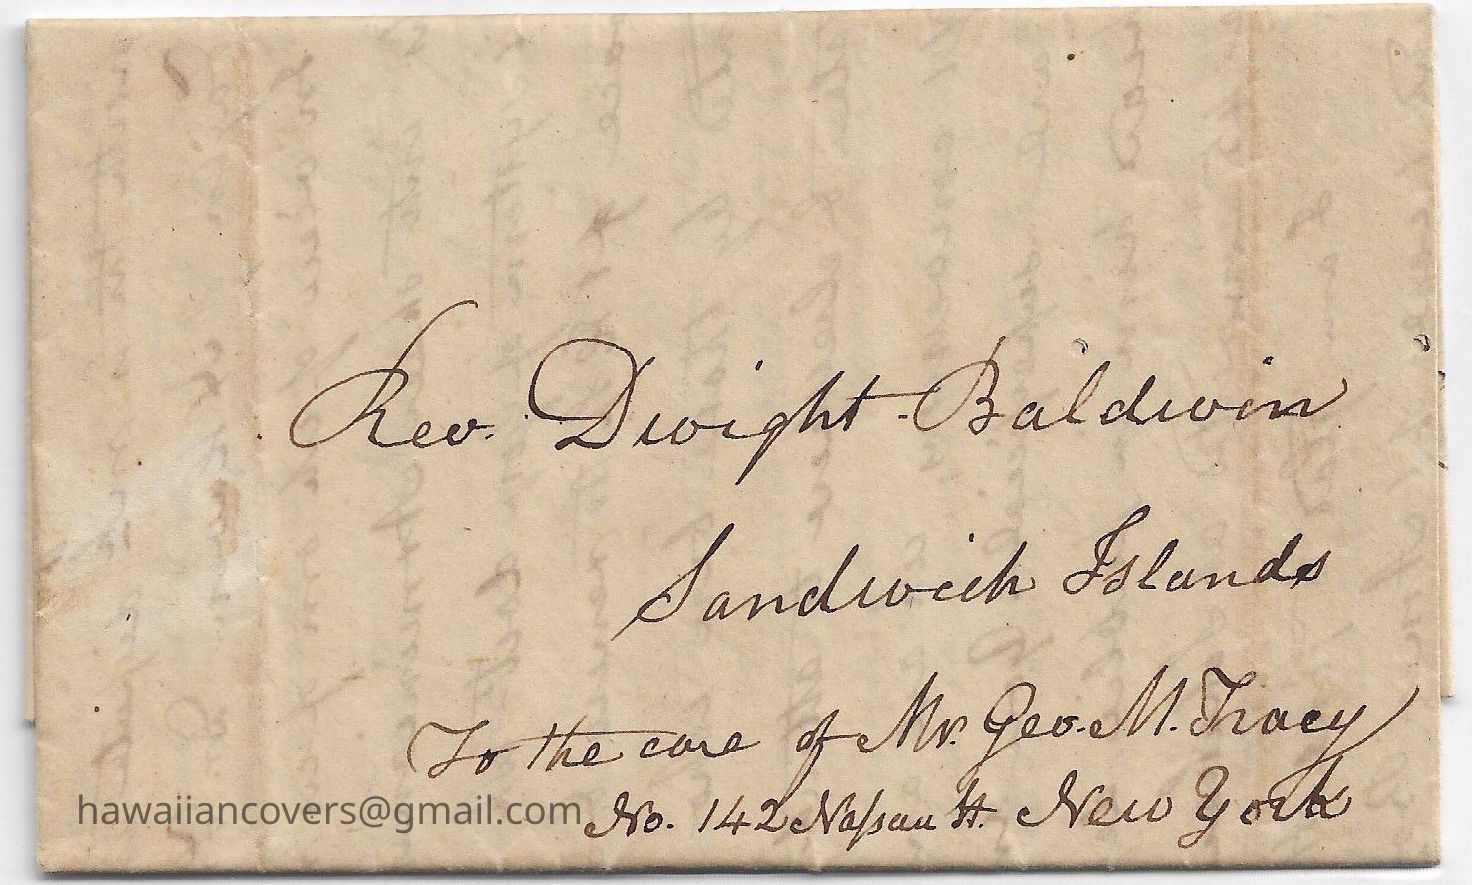 Rev. Dwight Baldwin
Sandwich Islands
To the care of Mr. Geo. M. Tracy
No. 142 Nassau St. New York
hawaiiancovers@gmail.com